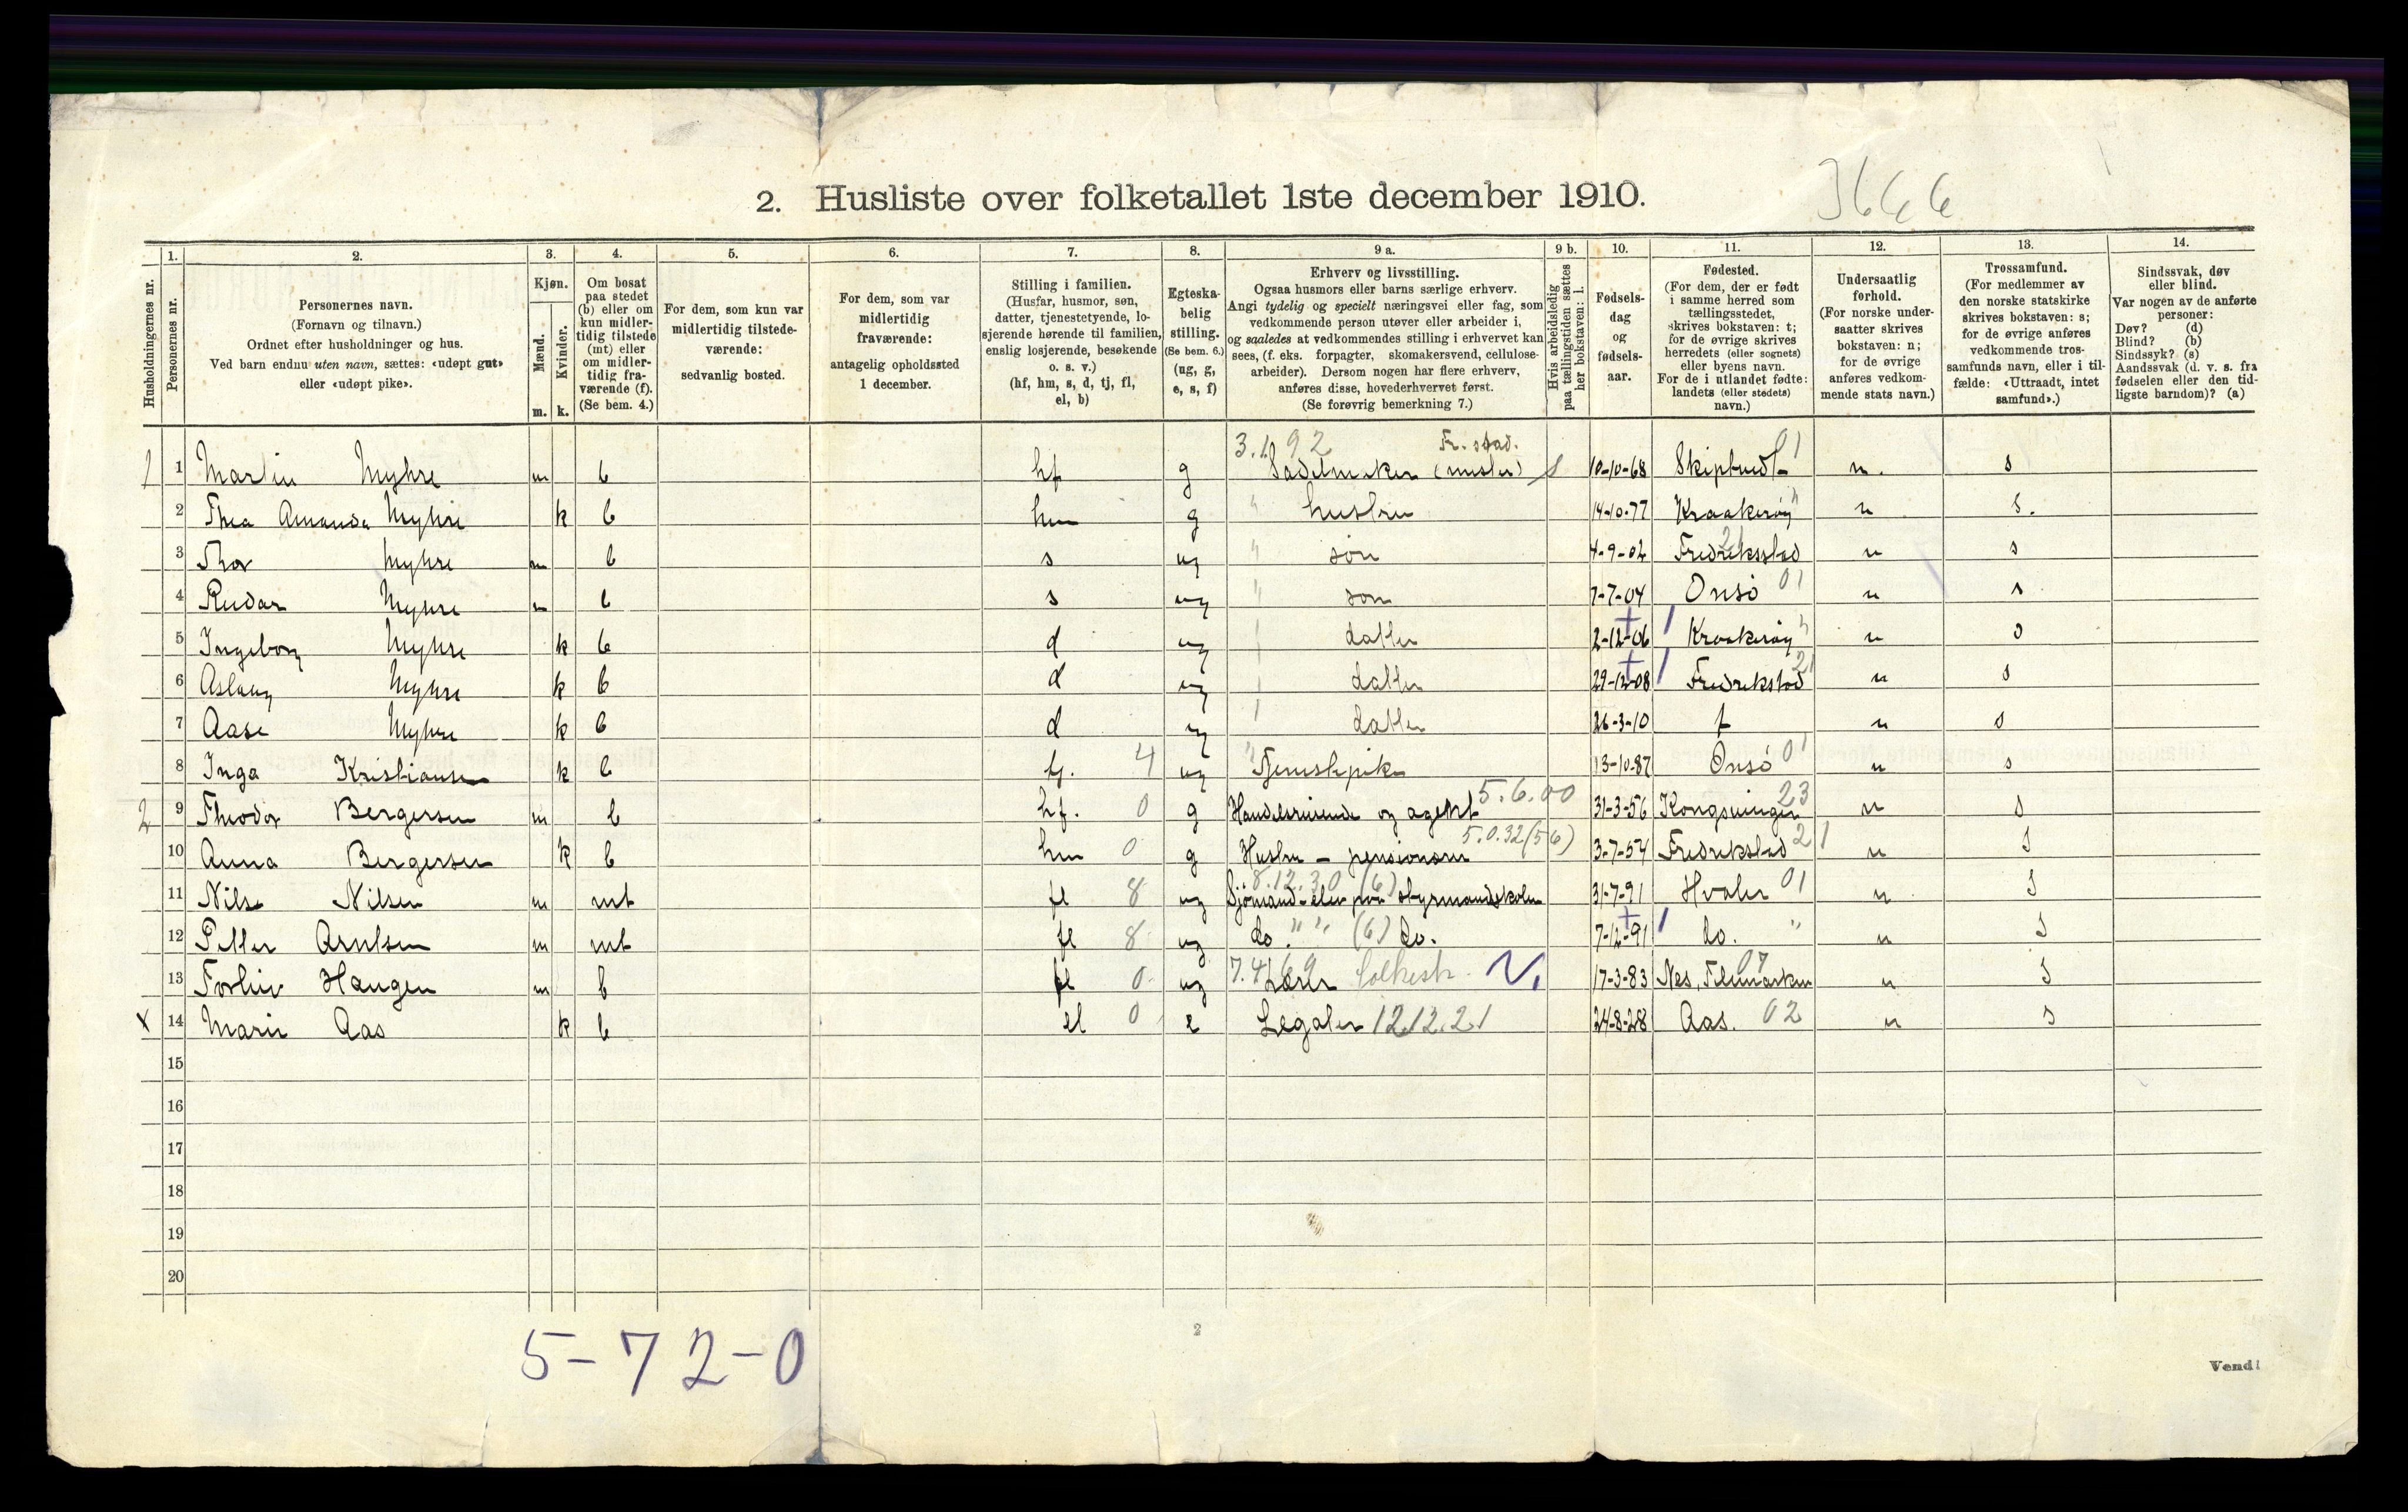 3666
2. Husliste over folketallet 1ste december 1910.
Husholdningernes nr.
1.
Personernes nr.
2.
Personernes navn.
(Fornavn og tilnavn.)
Ordnet efter husholdninger og hus.
Ved barn endnu uten navn, sættes: «udøpt gut»
eller «udøpt pike».
3.
Kjøn.
Mænd.
Kvinder.
m. k.
4.
Om bosat
paa stedet
(b) eller om
kun midler-
tidig tilstede
(mt) eller
om midler-
tidig fra-
værende (f).
(Se bem. 4.)
5.
For dem, som kun var
midlertidig tilstede-
værende:
sedvanlig bosted.
6.
For dem, som var
midlertidig
fraværende:
antagelig opholdssted
1 december.
7.
Stilling i familien.
(Husfar, husmor, søn,
datter, tjenestetyende, lo-
sjerende hørende til familien,
enslig losjerende, besøkende
o. s. v.)
(hf, hm, s, d, tj, fl,
el, b)
8.
Egteska-
belig
stilling.
(Se bem. 6.)
(ug, g,
e, s, f)
9 a.
Erhverv og livsstilling.
Ogsaa husmors eller barns særlige erhverv.
Angi tydelig og specielt næringsvei eller fag, som
vedkommende person utøver eller arbeider i,
og saaledes at vedkommendes stilling i erhvervet kan
sees, (f. eks. forpagter, skomakersvend, cellulose-
arbeider). Dersom nogen har flere erhverv,
anføres disse, hovederhvervet først.
(Se forøvrig bemerkning 7.)
9 b.
Hvis arbeidsledig
paa tællingstiden sættes
her bokstaven: l.
10.
Fødsels-
dag
og
fødsels-
aar.
11.
Fødested.
(For dem, der er født
i samme herred som
tællingsstedet,
skrives bokstaven: t;
for de øvrige skrives
herredets (eller sognets)
eller byens navn.
For de i utlandet fødte:
landets (eller stedets)
navn.)
12.
Undersaatlig
forhold.
(For norske under-
saatter skrives
bokstaven: n;
for de øvrige
anføres vedkom-
mende stats navn.)
13.
Trossamfund.
(For medlemmer av
den norske statskirke
skrives bokstaven: s;
for de øvrige anføres
vedkommende tros-
samfunds navn, eller i til-
fælde: «Uttraadt, intet
samfund».)
14.
Sindssvak, døv
eller blind.
Var nogen av de anførte
personer:
Døv? (d)
Blind? (b)
Sindssyk? (s)
Aandssvak (d. v. s. fra
fødselen eller den tid-
ligste barndom)? (a)
3.1.92 Fr. stad. 01
1 1 Martin Myhre m b hf g Sadelmaker (mester) 10-10-68 n. s
2 Thea Amanda Myhre k b hm g " hustru 14-10-77 Kraakerøy " n s.
3 Thor Myhre m b s ug " søn 4-9-02 Fredriksstad 21 n s
4 Reidar Myhre m b s ug " søn 7-7-04 Onsø 01 n s
5 Ingeborg Myhre k b d ug datter 2-12-06 Kraakerøy " n s
6 Aslaug Myhre k b d ug datter 29-12-08 Fredrikstad 21 n s
7 Aase Myhre k b d ug datter 26-3-10 t n s
8 Inga Kristiansen k b tj. 4 ug " Tjenestepike 13-10-87 Onsø 01 n s
5.6.00 23
2 9 Theodor Bergersen m b hf. 0 g Handelsreisende og agent 31-3-56 Kongsvinger n s
5.0.32(56)
10 Anna Bergersen k b hm 0 g Hustru - pensionær 3-7-54 Fredrikstad 21 n s
8.12.30 (6)
11 Nils Nilsen m mt fl 8 ug Sjømand - elev paa styrmandskolen 31-7-91 Hvaler 01 n s
12 Petter Arntsen m mt fl 8 ug do. " " (6) do. 7-12-91 do. " n s
13 Torleiv Haugen m b fl 0 ug Lærer folkesk. 17-3-83 Nes, Telemarken 07 n s
x 14 Marie Aas k b el 0 e 12.12.21 24-8-28 Aas. 02 n s
15
16
17
18
19
20
5-72-0
2
Vend!